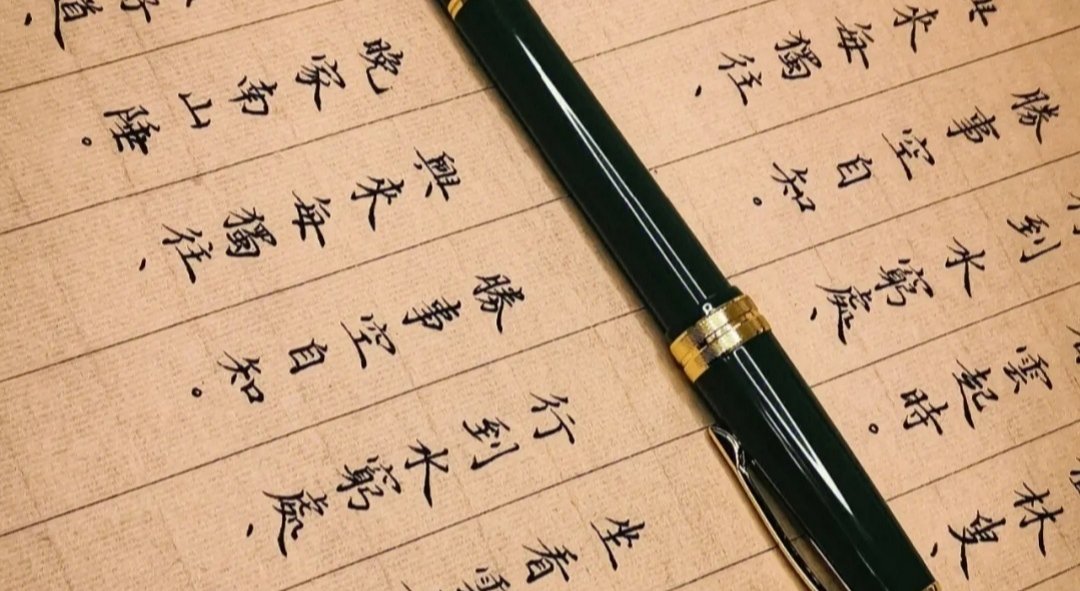 道、
晚家南山陲。
興來每獨往、
勝事空自知。
行到水窮處、
坐看雲
來每獨往、
勝事空自知。
到水窮處、
雲起時。
林叟、